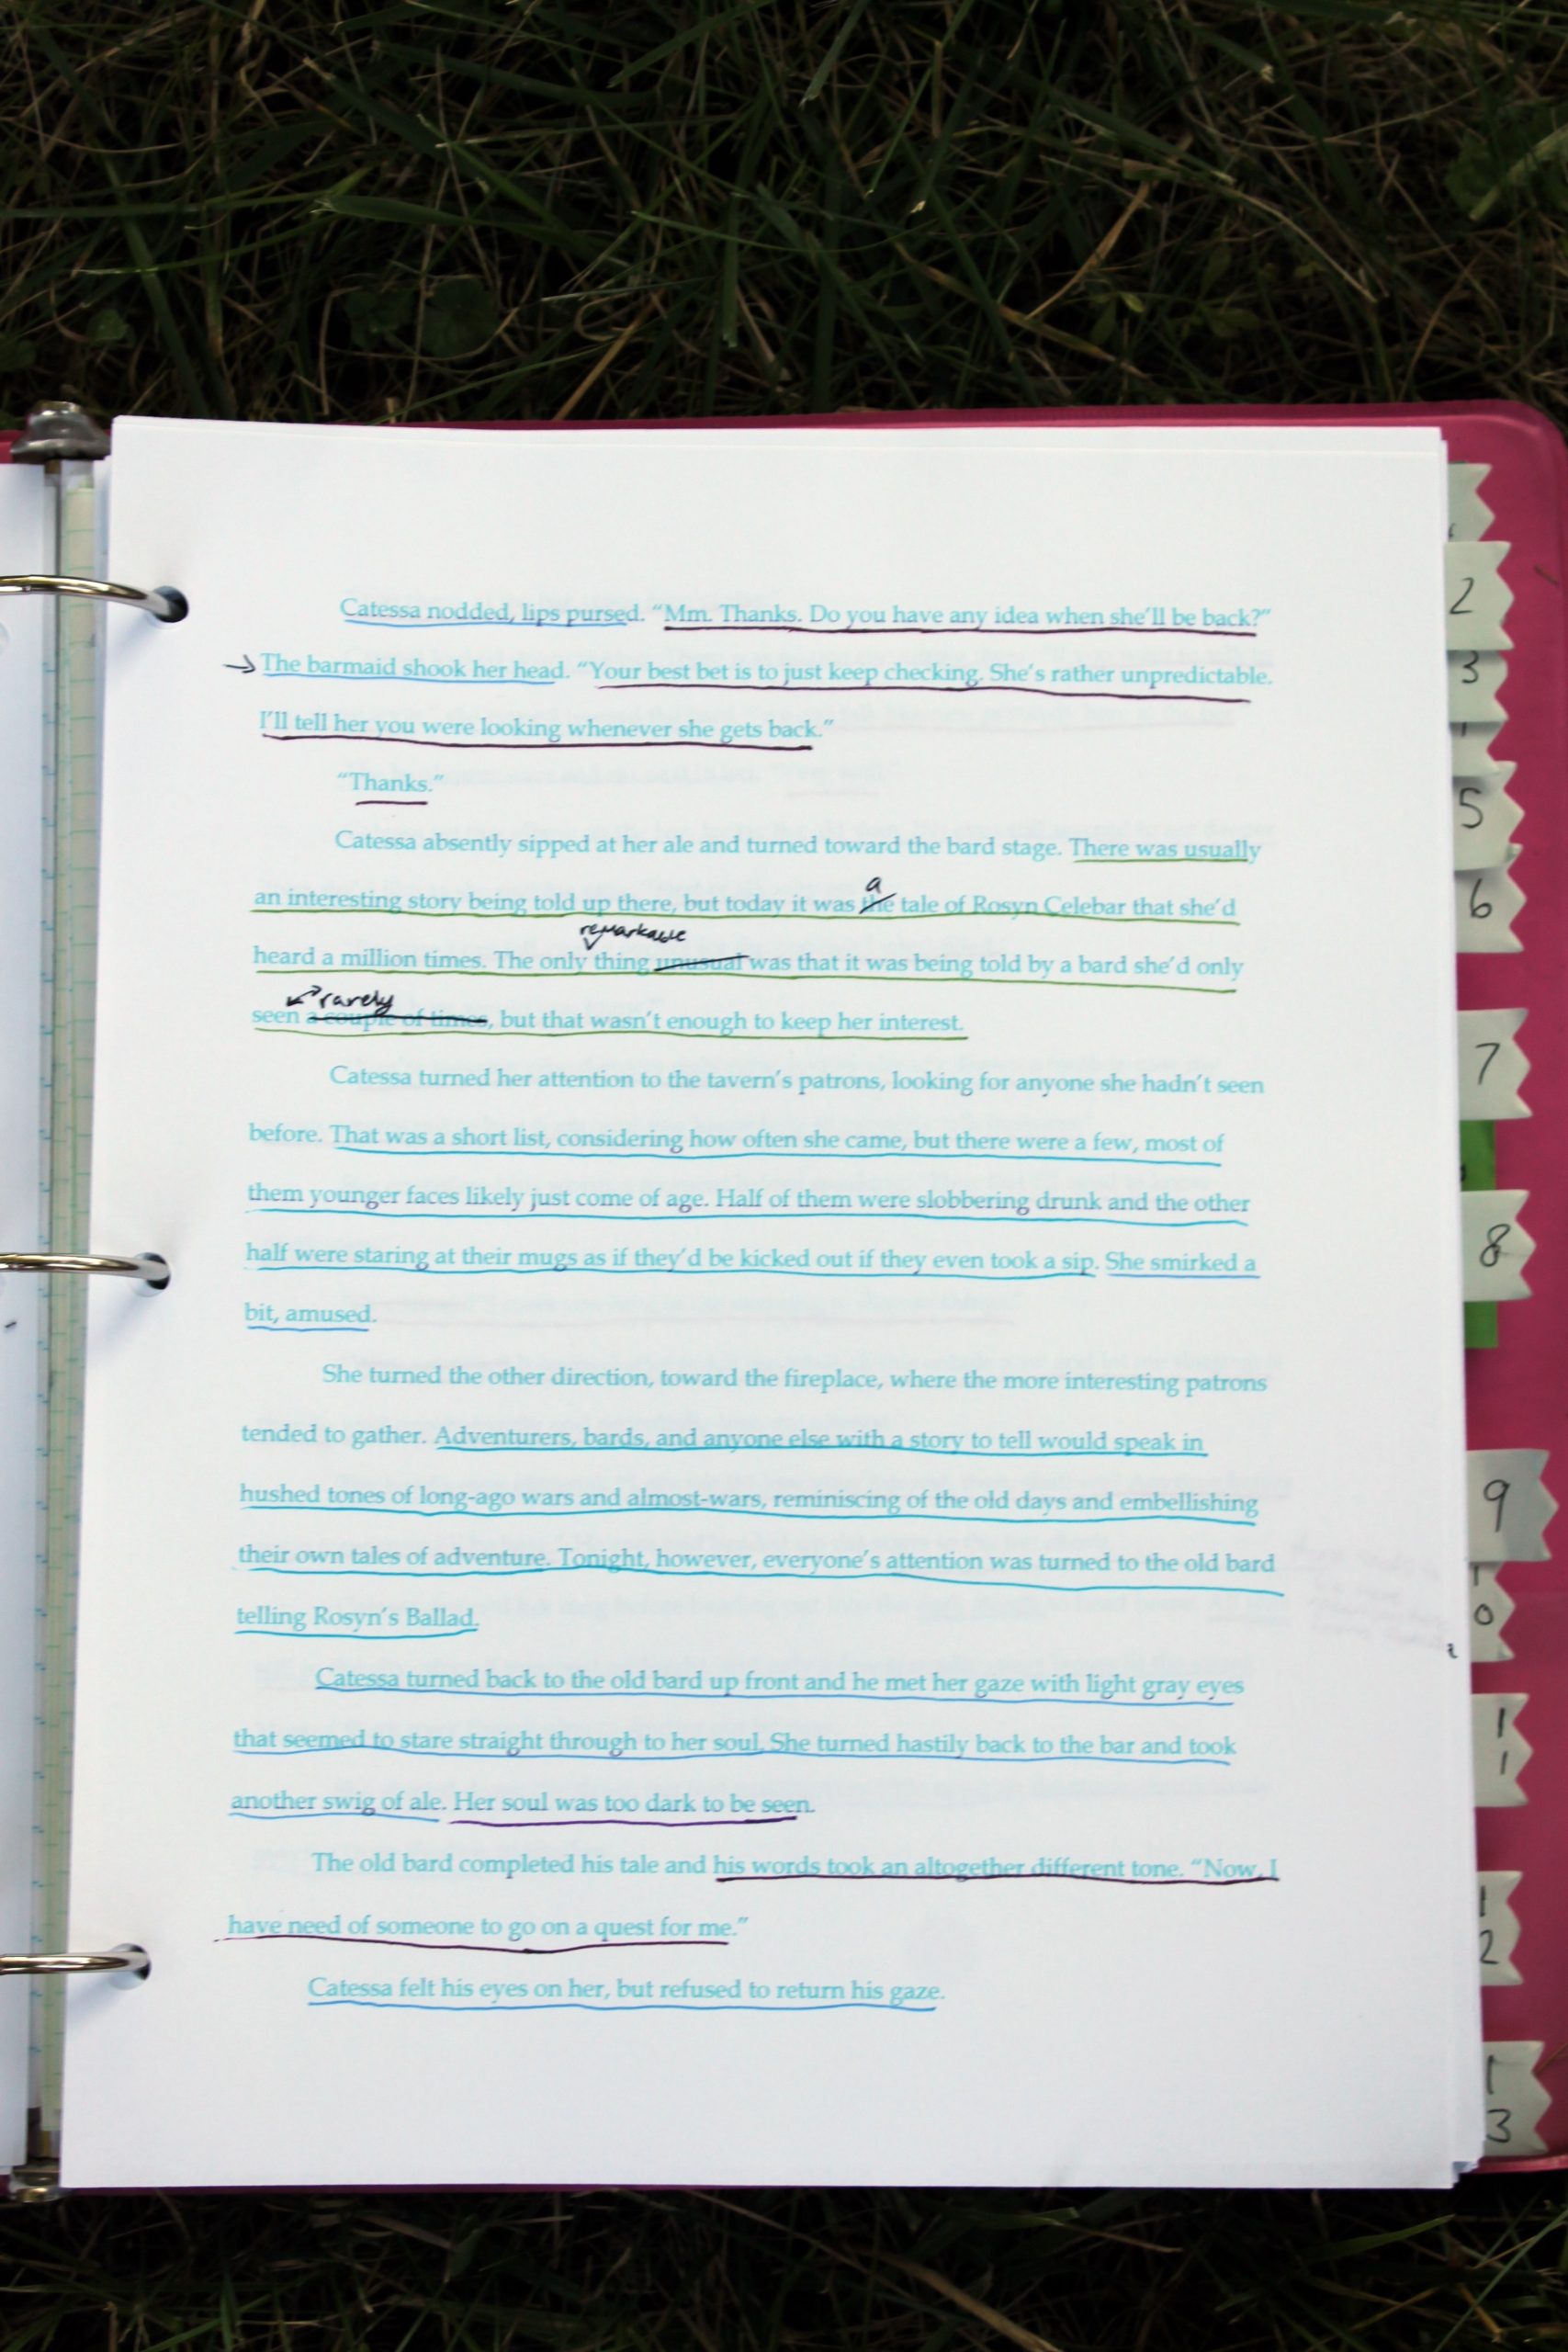 Catessa nodded, lips pursed. “Mm. Thanks. Do you have any idea when she’ll be back?”
→ The barmaid shook her head. “Your best bet is to just keep checking. She’s rather unpredictable.
I’ll tell her you were looking whenever she gets back.”
“Thanks.”
Catessa absently sipped at her ale and turned toward the bard stage. There was usually
a
an interesting story being told up there, but today it was the tale of Rosyn Celebar that she’d
remarkable
heard a million times. The only thing unusual was that it was being told by a bard she’d only
rarely
seen a couple of times, but that wasn’t enough to keep her interest.
Catessa turned her attention to the tavern’s patrons, looking for anyone she hadn’t seen
before. That was a short list, considering how often she came, but there were a few, most of
them younger faces likely just come of age. Half of them were slobbering drunk and the other
half were staring at their mugs as if they’d be kicked out if they even took a sip. She smirked a
bit, amused.
She turned the other direction, toward the fireplace, where the more interesting patrons
tended to gather. Adventurers, bards, and anyone else with a story to tell would speak in
hushed tones of long-ago wars and almost-wars, reminiscing of the old days and embellishing
their own tales of adventure. Tonight, however, everyone’s attention was turned to the old bard
telling Rosyn’s Ballad.
Catessa turned back to the old bard up front and he met her gaze with light gray eyes
that seemed to stare straight through to her soul. She turned hastily back to the bar and took
another swig of ale. Her soul was too dark to be seen.
The old bard completed his tale and his words took an altogether different tone. “Now, I
have need of someone to go on a quest for me.”
Catessa felt his eyes on her, but refused to return his gaze.
2
3
5
6
7
8
9
10
11
12
13